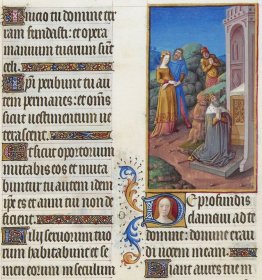 Inicio tu domine ter
ram fundasti: et opera
manuum tuarum sunt
celi.
Ipi peribunt tu au
tem permanes: et oms
sicut uestimentum ue
terascent.
Et sicut opertorium
mutabis eos et muta
buntur tu autem idem
ipe es et anni tui non de
ficient.
Filii seruorum tuo
rum habitabunt et se
men eorum in seculum
De profundis
clamaui ad te
domine: domine exau
di uocem meam.
Fiant aures tue in